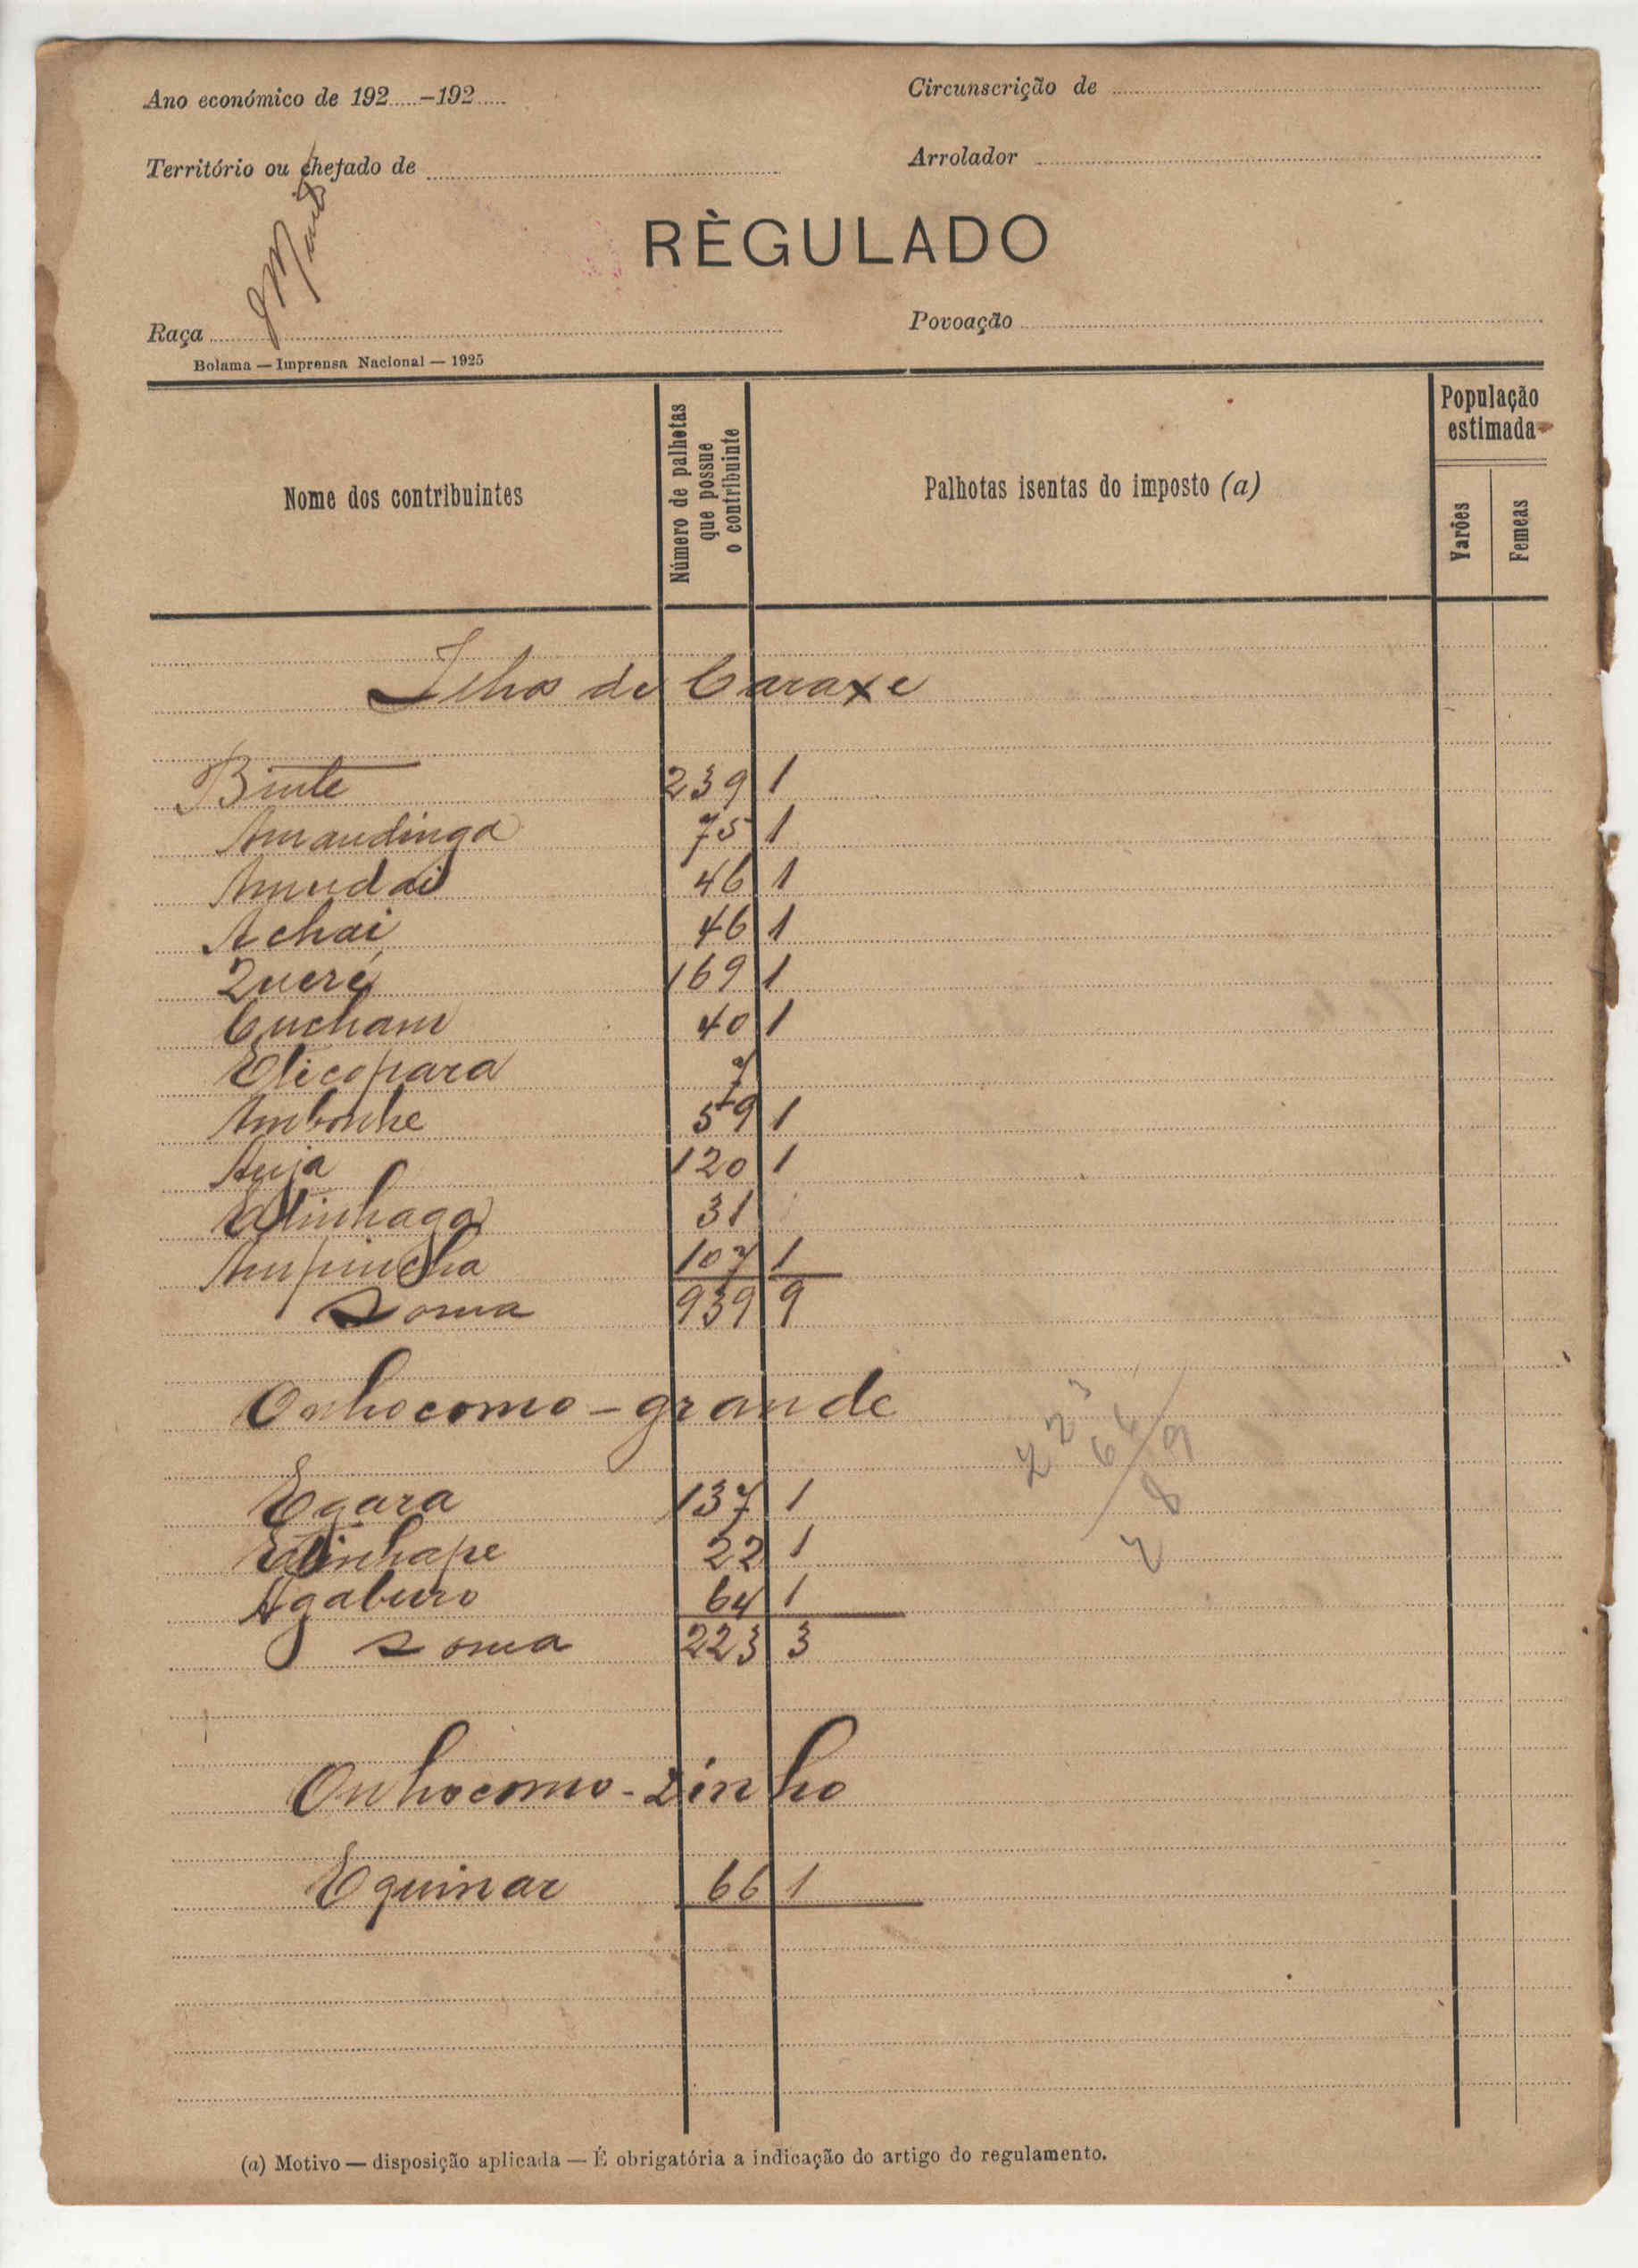 Ano económico de 192.....–192.....
Circunscrição de
Território ou chefado de
Arrolador
RÈGULADO
Raça
Povoação
Bolama — Imprensa Nacional — 1925
Nome dos contribuintes
Número de palhotas que possue o contribuinte
Palhotas isentas do imposto (a)
População estimada
Varões
Femeas
Ilhas de Caraxe
Binte 239 1
Amandinga 75 1
Amudai 46 1
Achai 46 1
Queré 169 1
Cucham 40 1
Eticopara 7
Ambonhe 59 1
Auja 120 1
31
Ampincha 107 1
Soma 939 9
Onhocomo-grande
Egara 137 1
22 1
Agaburo 64 1
Soma 223 3
Onhocomo-zinho
Equinar 66 1
(a) Motivo — disposição aplicada — É obrigatória a indicação do artigo do regulamento.